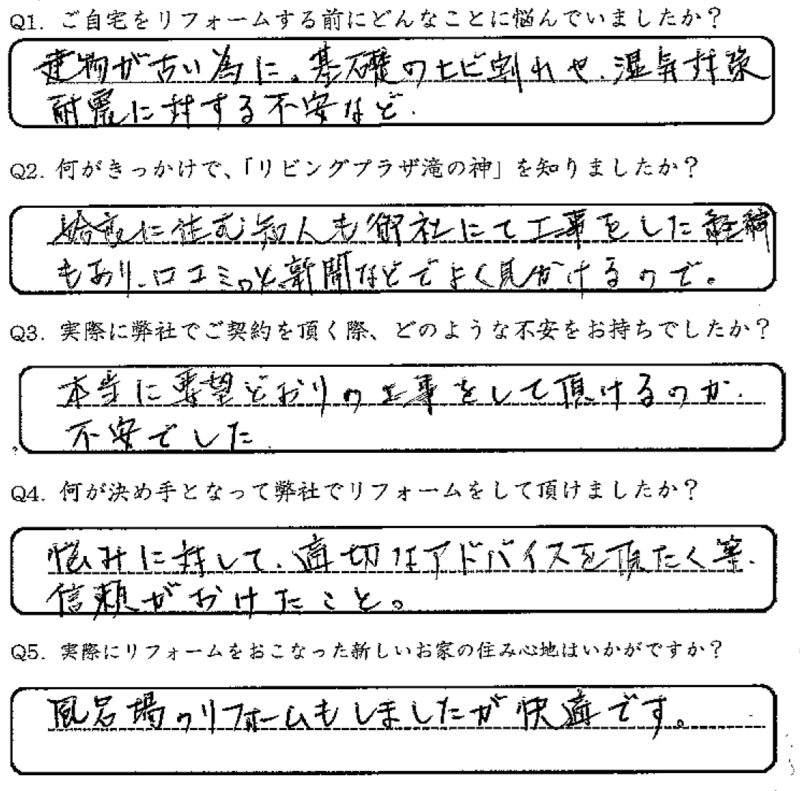 Q1. ご自宅をリフォームする前にどんなことに悩んでいましたか？
建物が古い為に、基礎のヒビ割れや、湿気対策
耐震に対する不安など.
Q2. 何がきっかけで、「リビングプラザ滝の神」を知りましたか？
に住む知人も御社にて工事をした経緯
もあり、口コミと、新聞などでよく見かけるので。
Q3. 実際に弊社でご契約を頂く際、どのような不安をお持ちでしたか？
本当に要望どおりの工事をして頂けるのか、
不安でした
Q4. 何が決め手となって弊社でリフォームをして頂けましたか？
悩みに対して、適切なアドバイスを頂たく等、
信頼がおけたこと。
Q5. 実際にリフォームをおこなった新しいお家の住み心地はいかがですか？
風呂場のリフォームもしましたが快適です。